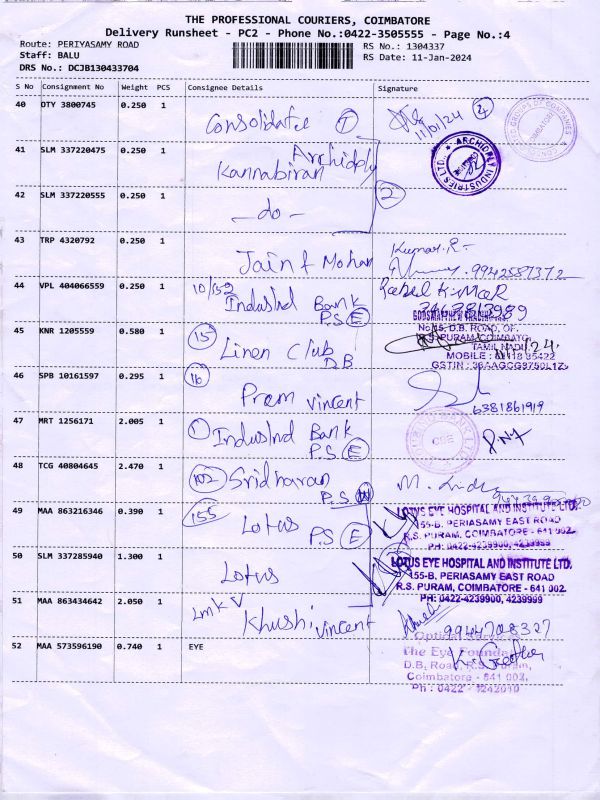 THE PROFESSIONAL COURIERS, COIMBATORE
Delivery Runsheet - PC2 - Phone No.:0422-3505555 - Page No.:4
Route: PERIYASAMY ROAD
RS No.: 1304337
Staff: BALU
RS Date: 11-Jan-2024
DRS No.: DCJB130433704
S No Consignment No Weight PCS Consignee Details Signature
40 OTY 3800745 0.250 1
Consolidated 1
11/01/24
41 SLM 337220475 0.250 1
Archidply
Kannabiran
ARCHIDPLY INDUSTRIES LTD.
42 SLM 337220555 0.250 1
- do - 2
43 TRP 4320792 0.250 1
Jain & Mohan
Kumar. R -
9942587372
44 VPL 404066559 0.250 1
10/152
IndusInd Bank
P.S E
45 KNR 1205559 0.580 1
15
Linen Club
D.B
No:45, D.B. ROAD,
R.S. PURAM, COIMBATORE
TAMIL NADU
MOBILE :
GSTIN :
46 SPB 10161597 0.295 1
16
Prem vincent
6381861919
47 MRT 1256171 2.005 1
1
IndusInd Bank
P.S E
CBE
48 TCG 40804645 2.470 1
102 Sridharan
P.S W
49 MAA 863216346 0.390 1
155 Lotus
P.S E
LOTUS EYE HOSPITAL AND INSTITUTE LTD.
155-B, PERIASAMY EAST ROAD
R.S. PURAM, COIMBATORE - 641 002.
PH: 0422-4239900, 4239999
50 SLM 337285940 1.300 1
Lotus
LOTUS EYE HOSPITAL AND INSTITUTE LTD.
155-B, PERIASAMY EAST ROAD
R.S. PURAM, COIMBATORE - 641 002.
PH: 0422-4239900, 4239999
51 MAA 863434642 2.050 1
LMK V
Khushi vincent
9944708327
52 MAA 573596190 0.740 1 EYE
The Eye Foundation
D.B. Road, R.S. Puram,
Coimbatore - 641 002.
Ph : 0422 - 4242010